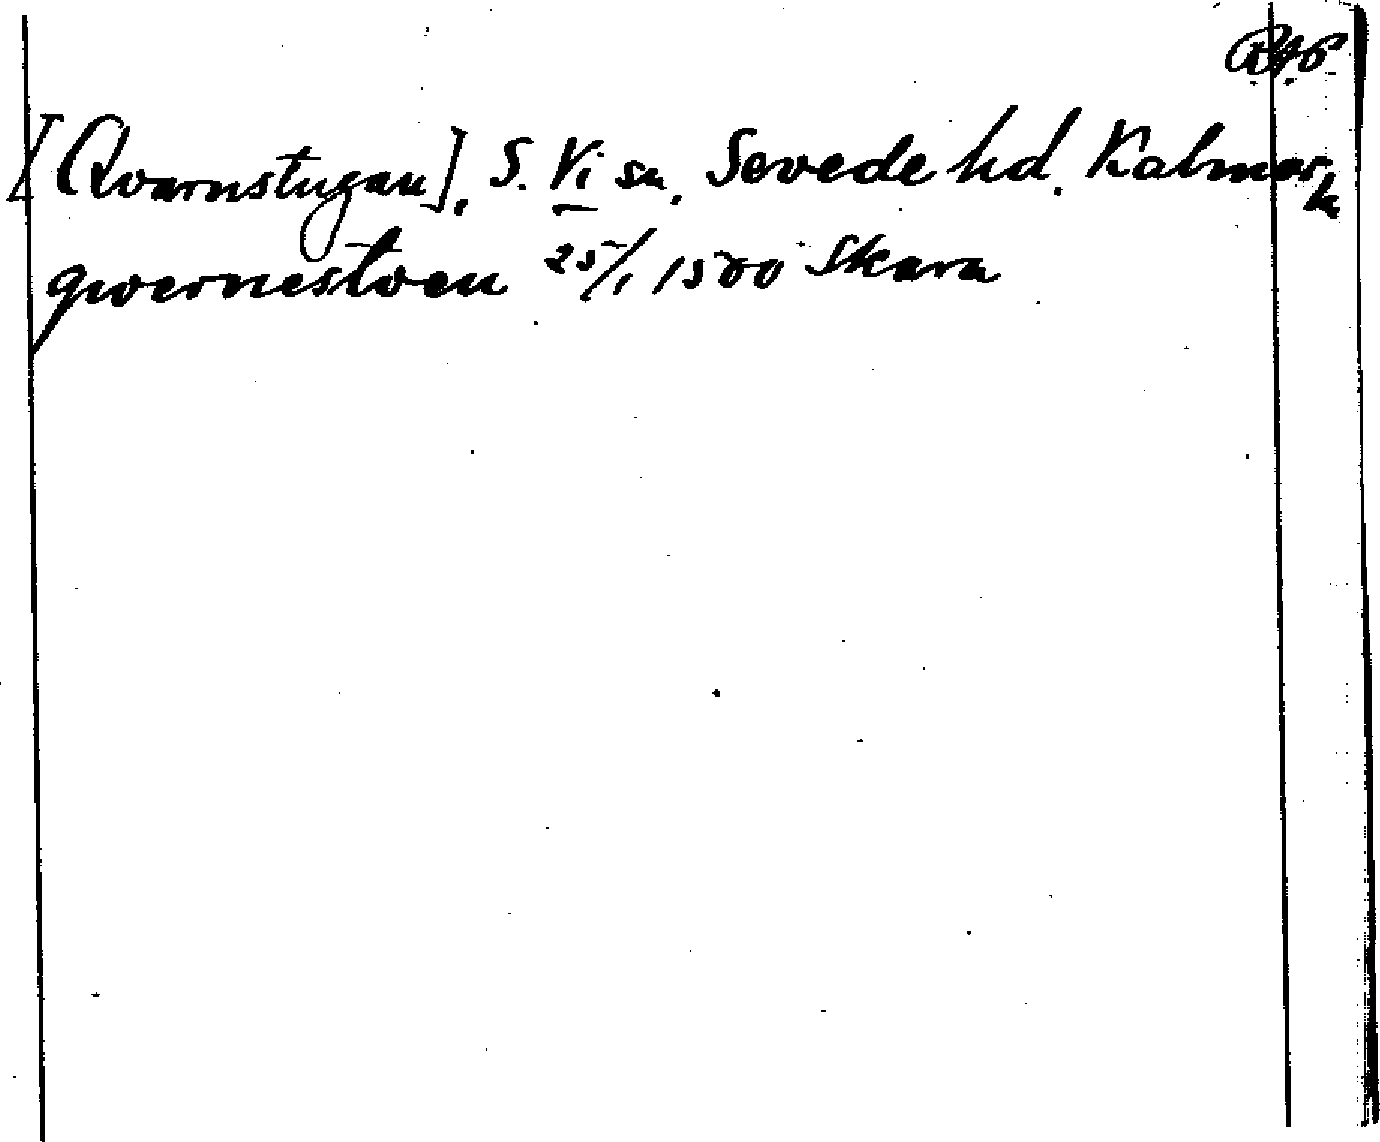 [Qvarnstugan]. S. Vi sn. Sevede hd. Kalmar
qwernestwen 25/1 1500 Skara